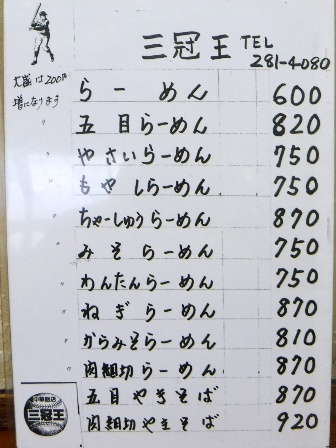 三冠王 TEL
281-4080
大盛は200円
増になります
らーめん 600
〃 五目らーめん 820
やさいらーめん 750
〃 もやしらーめん 750
ちゃーしゅうらーめん 870
〃 みそらーめん 750
〃 わんたんらーめん 750
〃 ねぎらーめん 870
〃 からみそらーめん 810
〃 肉細切らーめん 870
五目やきそば 870
肉細切やきそば 920
中華飯店
三冠王